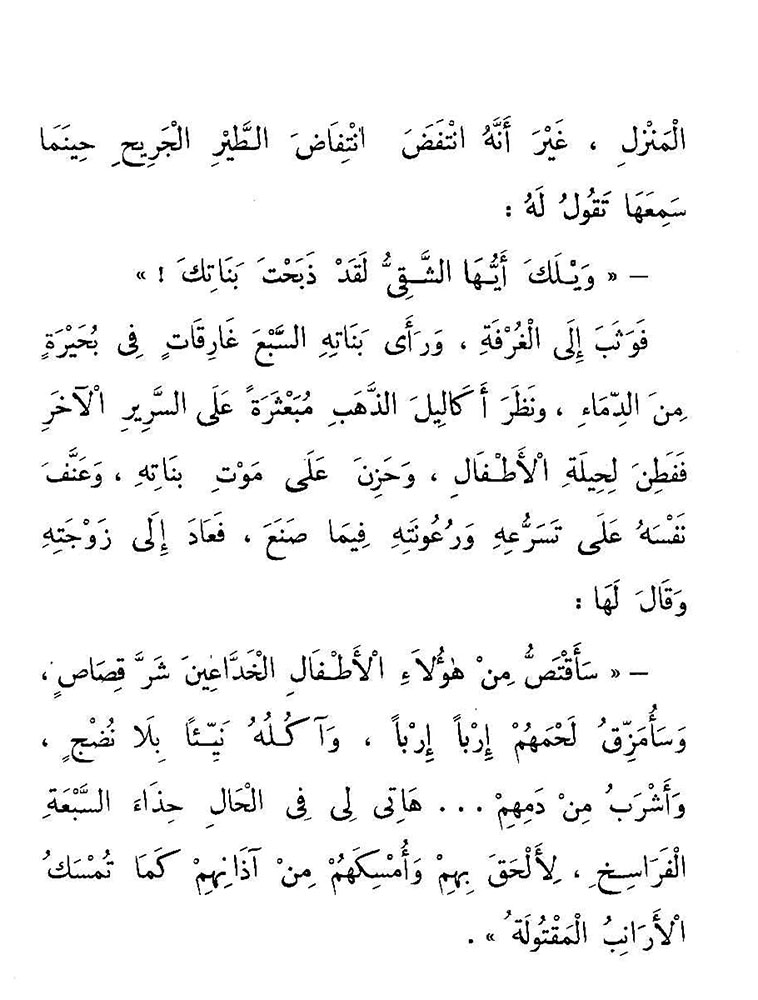 الْمَنْزِلِ ، غَيْرَ أَنَّهُ انْتَفَضَ انْتِفَاضَ الطَّيْرِ الْجَرِيحِ حِينَمَا
سَمِعَهَا تَقُولُ لَهُ :
– « وَيْلَكَ أَيُّهَا الشَّقِىُّ لَقَدْ ذَبَحْتَ بَنَاتِكَ ! »
فَوَثَبَ إِلَى الْغُرْفَةِ ، وَرَأَى بَنَاتِهِ السَّبْعَ غَارِقَاتٍ فِى بُحَيْرَةٍ
مِنَ الدِّمَاءِ ، ونَظَرَ أَكَالِيلَ الذَّهَبِ مُبَعْثَرَةً عَلَى السَّرِيرِ الْآخَرِ
فَفَطِنَ لِحِيلَةِ الْأَطْفَالِ ، وَحَزِنَ عَلَى مَوْتِ بنَاتِهِ ، وَعَنَّفَ
نَفْسَهُ عَلَى تَسَرُّعِهِ وَرُعُونَتِهِ فِيمَا صَنَعَ ، فَعَادَ إِلَى زَوْجَتِهِ
وَقَالَ لَهَا :
– « سَأَقْتَصُّ مِنْ هٰؤُلَاءِ الْأَطْفَالِ الْخَدَّاعِينَ شَرَّ قِصَاصٍ ،
وَسَأُمَزِّقُ لَحْمَهُمْ إِرْباً إِرْباً ، وَآكُلُهُ نَيِّئاً بِلَا نُضْجٍ ،
وَأَشْرَبُ مِنْ دَمِهِمْ ... هَاتِى لِى فِى الْحَالِ حِذَاءَ السَّبْعَةِ
الْفَرَاسِخِ ، لِأَلْحَقَ بِهِمْ وَأُمْسِكَهُمْ مِنْ آذَانِهِمْ كَمَا تُمْسَكُ
الْأَرَانِبُ الْمَقْتُولَةُ » .